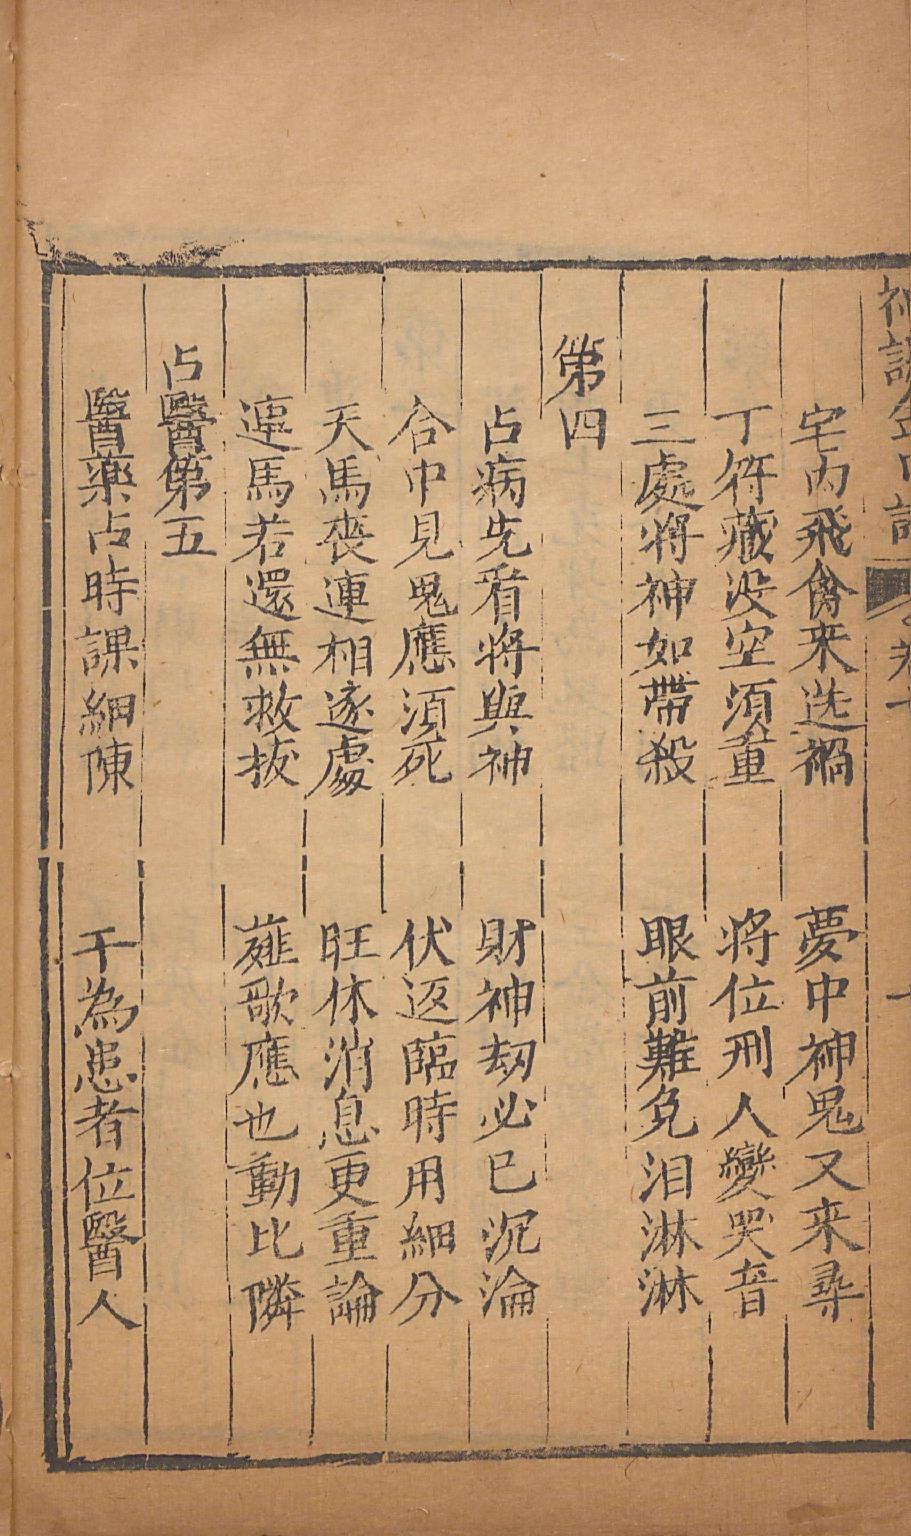 宅内飛禽来迭禍　夢中神鬼又来尋
丁符藏没空須重　將位刑人變哭音
三處將神如帶殺　眼前難免泪淋淋
第四
占病先看將與神　財神刼必巳沉淪
合中見鬼應須死　伏返臨時用細分
天馬喪連相逐處　旺休消息更重論
連馬若還無救抜　薤歌應也動比隣
占醫第五
醫藥占時課細陳　干為患者位醫人